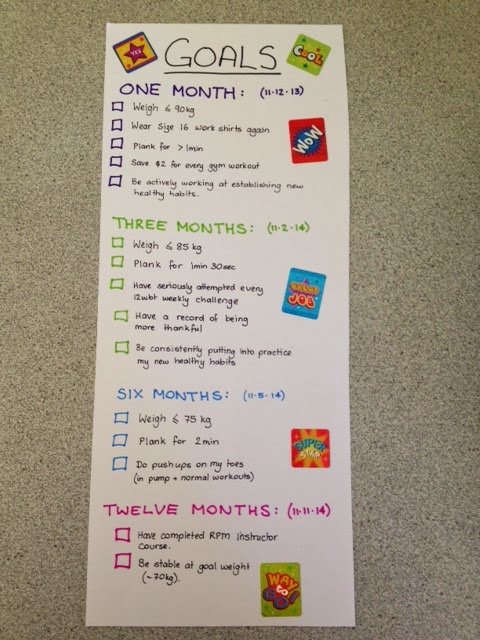 YES
GOALS
COOL
ONE MONTH: (11·12·13)
Weigh ≤ 90kg
Wear Size 16 work shirts again
Plank for > 1min
WOW
Save $2 for every gym workout
Be actively working at establishing new
healthy habits.
THREE MONTHS: (11·2·14)
Weigh ≤ 85 kg
Plank for 1min 30sec
Have seriously attempted every
12wbt weekly challenge
JOB
Have a record of being
more thankful
Be consistently putting into practice
my new healthy habits
SIX MONTHS: (11·5·14)
Weigh ≤ 75 kg
Plank for 2min
SUPER
STAR
Do pushups on my toes
(in pump + normal workouts)
TWELVE MONTHS: (11·11·14)
Have completed RPM Instructor
Course.
Be stable at goal weight
(~70kg).
WAY
to
GO!